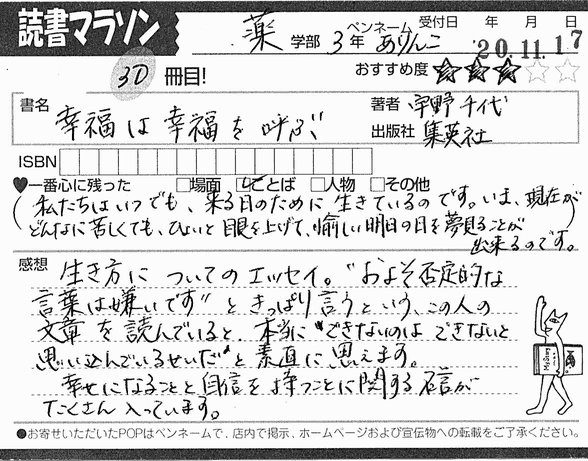 読書マラソン
薬 学部 3年 ペンネーム ありんこ 受付日 年 月 日 '20.11.17
30 冊目! おすすめ度 ★★★☆☆
書名 幸福は幸福を呼ぶ
著者 宇野千代
出版社 集英社
ISBN
♥一番心に残った □場面 ☑ことば □人物 □その他
(私たちはいつでも、来る日のために生きているのです。いま、現在が
どんなに苦しくても、ひょいと眼を上げて、愉しい明日の日を夢見ることが
出来るのです。)
感想 生き方についてのエッセイ。"およそ否定的な
言葉は嫌いです"ときっぱり言うという、この人の
文章を読んでいると、本当に"できないのはできないと
思い込んでいるせいだ"と素直に思えます。
幸せになることと自信を持つことに関する名言が
たくさん入っています。
●お寄せいただいたPOPはペンネームで、店内で掲示、ホームページおよび宣伝物への転載をご了承ください。